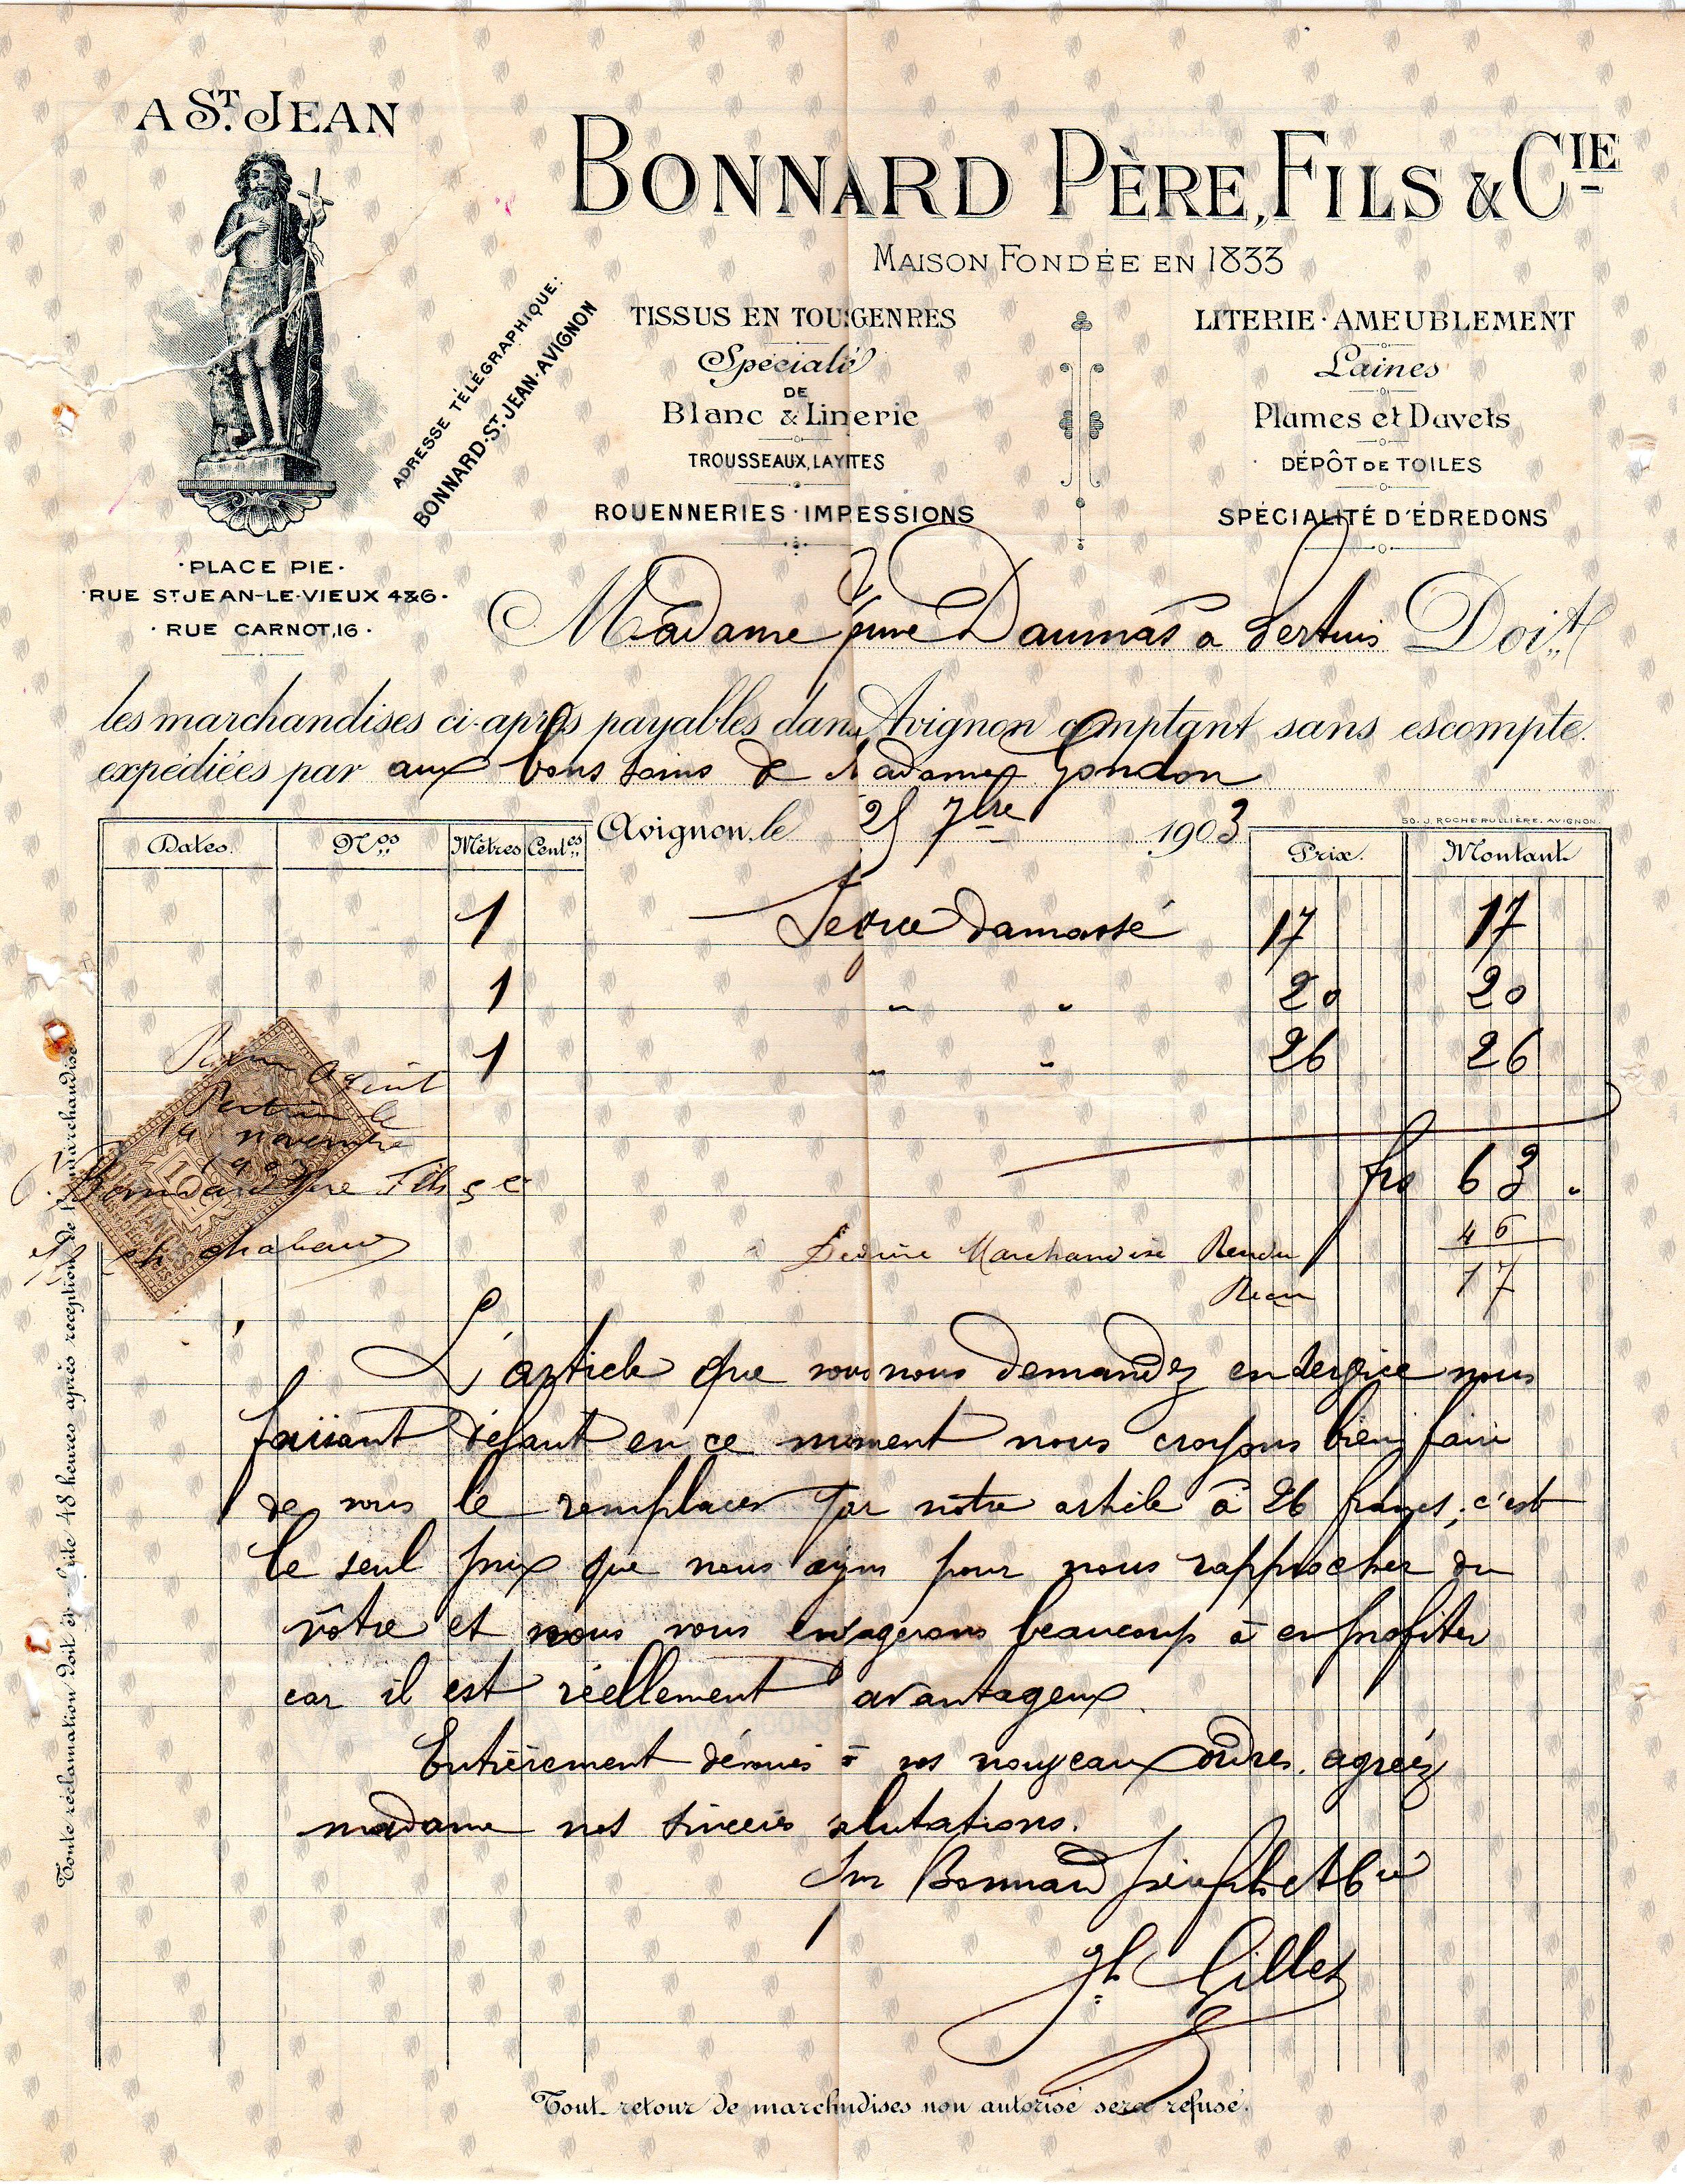 A ST. JEAN
BONNARD PÈRE, FILS & CIE
MAISON FONDÉE EN 1833
ADRESSE TÉLÉGRAPHIQUE:
BONNARD-ST. JEAN-AVIGNON
TISSUS EN TOUS GENRES
Spécialité
DE
Blanc & Lingerie
TROUSSEAUX, LAYETTES
ROUENNERIES · IMPRESSIONS
LITERIE · AMEUBLEMENT
Laines
Plumes et Duvets
DÉPÔT DE TOILES
SPÉCIALITÉ D'ÉDREDONS
·PLACE PIE·
·RUE ST JEAN-LE-VIEUX 4&6·
·RUE CARNOT, 16·
Madame Veuve Daumas à Pertuis Doit
les marchandises ci-après payables dans Avignon comptant sans escompte.
expédiées par aux bons soins de Madame Gondon
Avignon, le 25 7bre 1903
50. J. ROCHE RULLIÈRE. AVIGNON.
Dates. Nos Mètres Centes Prix. Montant
1 Service damassé 17 17
1 " " 20 20
1 " " 26 26
frs 63 "
46
Marchandise Rendu
17
Reçu
Pertuis le
14 novembre
10c
L'article que vous nous demandez en service nous
faisant défaut en ce moment nous croyons bien faire
de vous le remplacer par notre article à 26 francs; c'est
le seul prix que nous ayons pour nous rapprocher du
vôtre et nous vous engageons beaucoup à en profiter
car il est réellement avantageux.
Entièrement dévoués à vos nouveaux ordres, agréez
madame nos sincères salutations.
Pour Bonnard père fils et Cie
Jh Gillet
Toute réclamation doit être faite 48 heures après réception de la marchandise
Tout retour de marchandises non autorisé sera refusé.